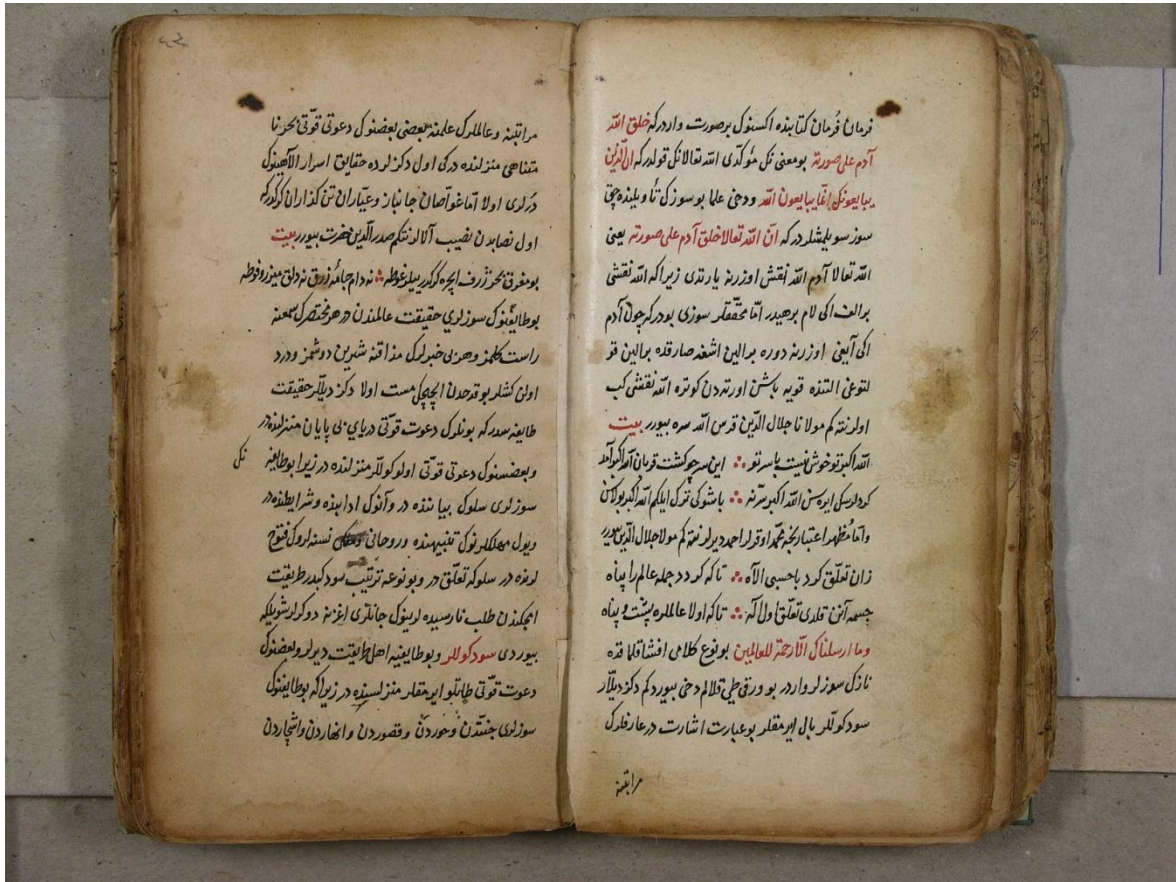 فرمان قُرمان كتابنده اكسنوك بر صورت واردركه خلق الله
آدم على صورته بو معنى نك مؤكّدى الله تعالانك قولدركه انّ الّذين
يبايعونك انّما يبايعون الله ودخى علما بو سوزك تأويلنده چق
سوز سويلمشلردركه انّ الله تعالا خلق آدم على صورته يعنى
الله تعالا آدم الله نقش اوزرنه يارتدى زيراكه الله نقشى
بر الف اكى لام بر هيدر امّا محقّقلر سوزى بودركه چون آدم
اكى آيغى اوزرنه دوره بر الين اشغه صارقده بر الين قو
لتوغى التنده قويه باشن اورته دن كوتره الله نقشى كب
اولر نته كم مولانا جلال الدّين قدس الله سره بيورر بيت
الله اكبر تو خوش نيست با سر تو ؞ اين سر چو كشت قربان الله اكبر آمد
الله اكبر سرّنه ؞ باشوكى ترك ايلكم الله اكبر بولاسن
وامّا مظهر اعتبارنجه محمّد اوقرلر احمد ديرلر نته كم مولا جلال الدّين بيورر
زان تعلّق كرد با جسمى الآه ؞ تا كه كردد جمله عالم را پناه
جسمه آنن قلدى تعلّق اول اله ؞ تا كه اولا عالملره پشت و پناه
وما ارسلناك الّا رحمة للعالمين بو نوع كلامى افشا قلماقده
نازك سوزلر واردر بو ورقى طىّ قلالم دخى بيوردكم دكز ديللّر
سود كوللّر بال ايرمقلر بو عبارت اشارت در عارفلرك
مراتبنه
مراتبنه وعالملرك علمنه بعضى بعضنوك دعوتى قوّتى بحر نا
متناهى منزلنده دركى اول دكزلرده حقايق اسرار الآهينوك
درلرى اولا امّا غوّاصان جانباز وعيّاران تن كذاران كركدركه
اول نصابدن نصيب آلالر نتكم صدر الّدين حضرت بيورر بيت
بو مغرق بحر ژرف ايچره كركدر بيلر غوطه ؞ نه دام جامۀ زرق نه دلق ميزر وفوطه
بو طايفنوك سوزلرى حقيقت عالمندن در هر مختصرك سمعنه
راست كلمز وهر بى خبرلرك مذاقنه شيرين دوشمز ودرد
اولن كشلر بو قدحدن ايچيچك مست اولا دكز ديللّر حقيقت
طايفه سدركه بونلرك دعوت قوّتى درياى بى پايان منزلنده در
وبعضسنوك دعوتى قوّتى اولو كوللّر منزلنده در زيرا بو طايفه نك
سوزلرى سلوك بيانندە در وآنوك ادابنده وشرايطنده در
ويول مهلكلرنوك تنبيهنده وروحانى نسنه لروك فتوح
لرنده در سلوكه تعلّق در وبو نوعه ترتيب سود كبدر طريقت
انجكندن طلب نارسيده لرينوك جانلرى اغزنه دوكرلر شويلكه
بيوردى سود كوللر وبو طايفيه اهل طريقت ديرلر وبعضنوك
دعوت قوّتى طاتلو ايرمقلر منزلسنده در زيراكه بو طايفنوك
سوزلرى جنّتدن وحوردن وقصوردن وانهاردن واشجاردن